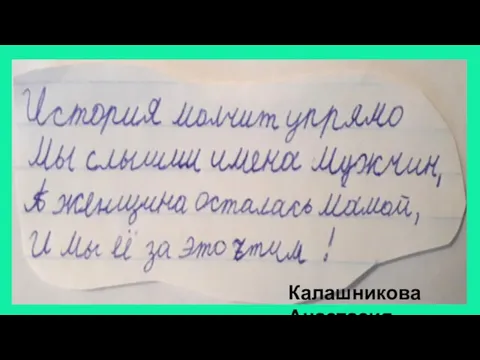 История молчит упрямо
Мы слышим имена мужчин,
А женщина осталась мамой,
И мы её за это чтим!
Калашникова
Анастасия